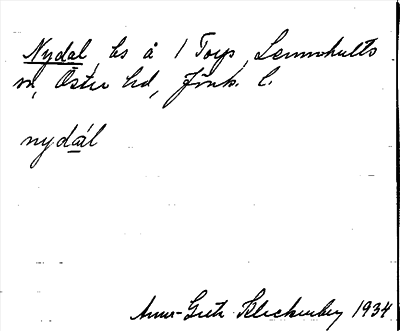 Nydal, bs å 1 Torp, Lemnhults
sn, Östra hd, Jönk. l.
nydál
Anna-Greta Bleckenberg 1934